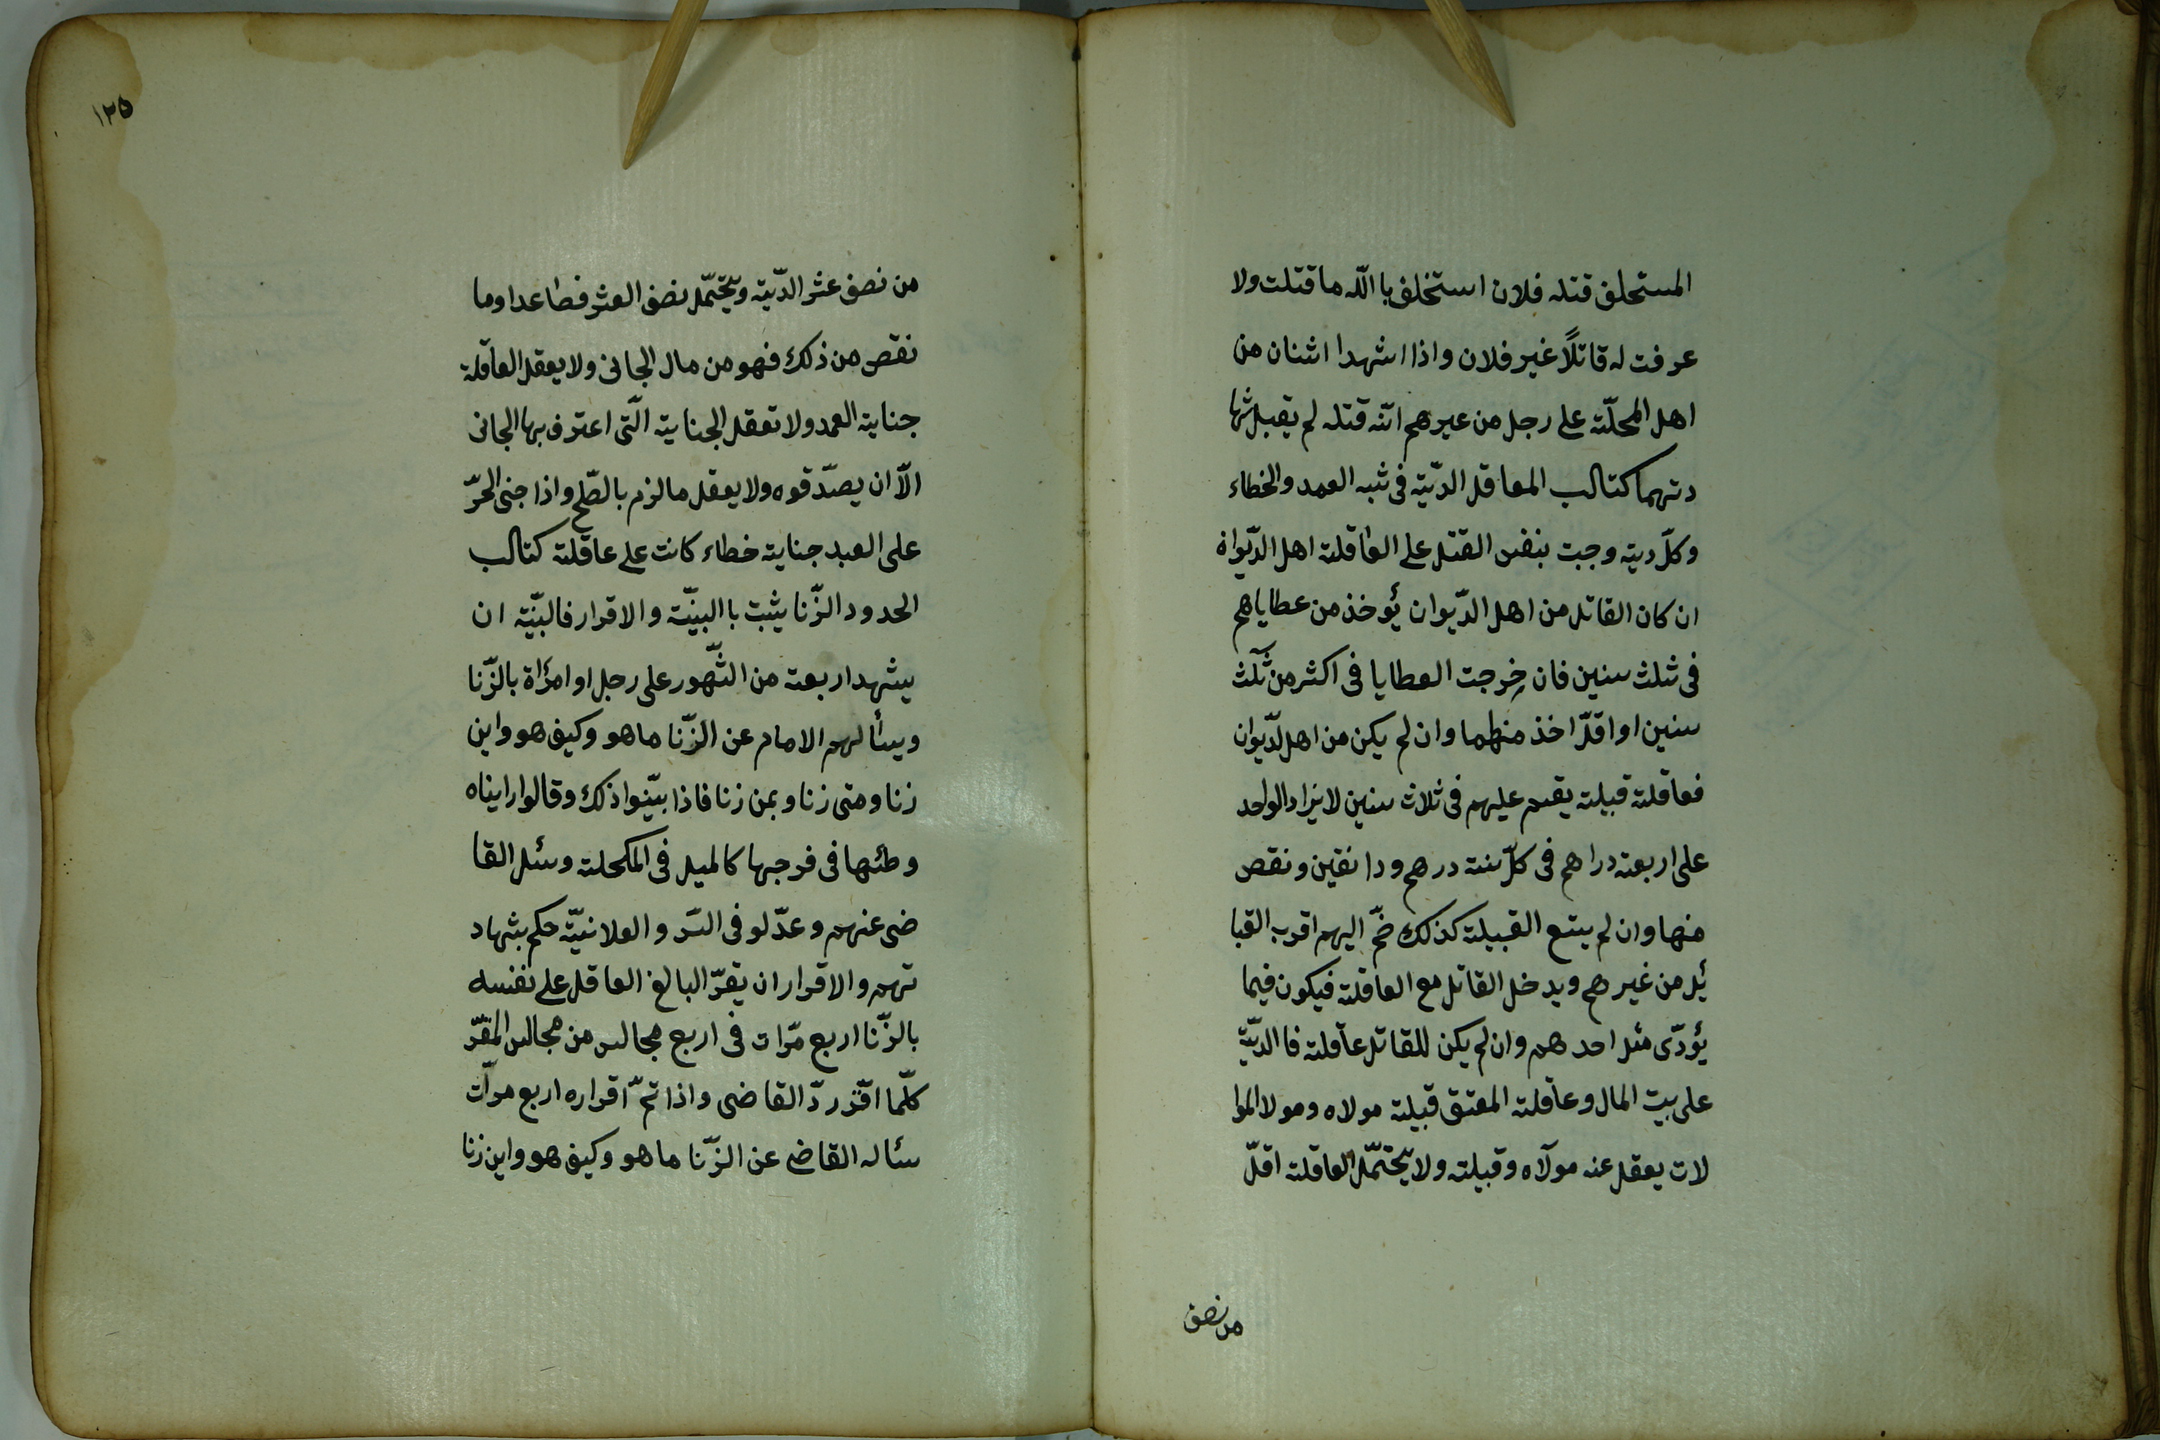 المستحلف قتله فلان استخلف با الله ما قتلت ولا
عرفت له قاتلاً غير فلان واذا اشهدا اثنان من
اهل المحلّة على رجل من غيرهم انّه قتله لم يقبل شها
دتهما كتاب المعاقل الدّية فى شبه العمد والخطاء
وكلّ دية وجبت بنفس القتل على العاقلة اهل الدّيوان
ان كان القاتل من اهل الدّيوان يؤخذ من عطاياهم
فى ثلث سنين فان خرجت العطايا فى اكثر من ثلث
سنين او اقلّ اخذ منهما وان لم يكن من اهل لدّيوان
فعاقلته قبيلته يقسم عليهم فى ثلاث سنين لا يزاد الواحد
على اربعة دراهم فى كلّ سنة درهم ودانقين ونقص
منها وان لم يتسع القبيلة كذلك ضمّ اليهم اقرب القبا
ئل من غيرهم ويدخل القاتل مع العاقلة فيكون فيما
يؤدّى مثل احدهم وان لم يكن للقاتل عاقلة فا الدّيّة
على بيت المال وعاقلة المعتق قبيلة مولاه ومولا الموا
لات يعقل عنه مولاه وقبيلته ولا يحتمّل العاقلة اقلّ
من نصف
١٢٥
من نصف عشر الدّية ويحتمّل نصف العشر فصاعدا وما
نقص من ذلك فهو من مال الجانى ولا يعقل العاقلة
جناية العمد ولا تعقل الجناية الّتى اعترف بها الجانى
الّا ان يصدّقوه ولا يعقل ما لزم بالصّلح واذا جنى الحرّ
على العبد جناية خطاء كانت على عاقلته كتاب
الحدود الزّنا يثبت با البيّنة والاقرار فالبيّنة ان
يشهد اربعة من الشّهور على رجل او امرأة بالزّنا
ويسألهم الامام عن الزّنا ما هو وكيف هو واين
زنا ومتى زنا وبمن زنا فاذا بيّنوا ذلك وقالوا رايناه
وطئها فى فرجها كالميل فى المكحلة وسئل القا
ضى عنهم وعدّلو فى السّر والعلانيّة حكم بشهاد
تهم والاقرار ان يقرّ البالغ العاقل على نفسه
بالزّنا اربع مرّات فى اربع مجالس من مجالس المقرّ
كلّما اقرّ ردّ القاضى واذا تمّ اقراره اربع مرّات
سئاله القاضى عن الزّنا ما هو وكيف هو واين زنا